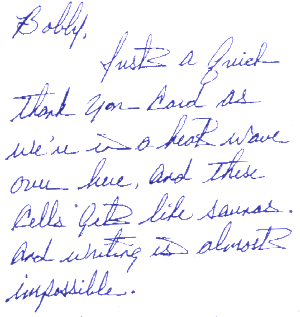 Bobby,
Just a Quick
thank you Card as
we're in a heat wave
over here, and these
Cells get like saunas.
And writing is almost
impossible.